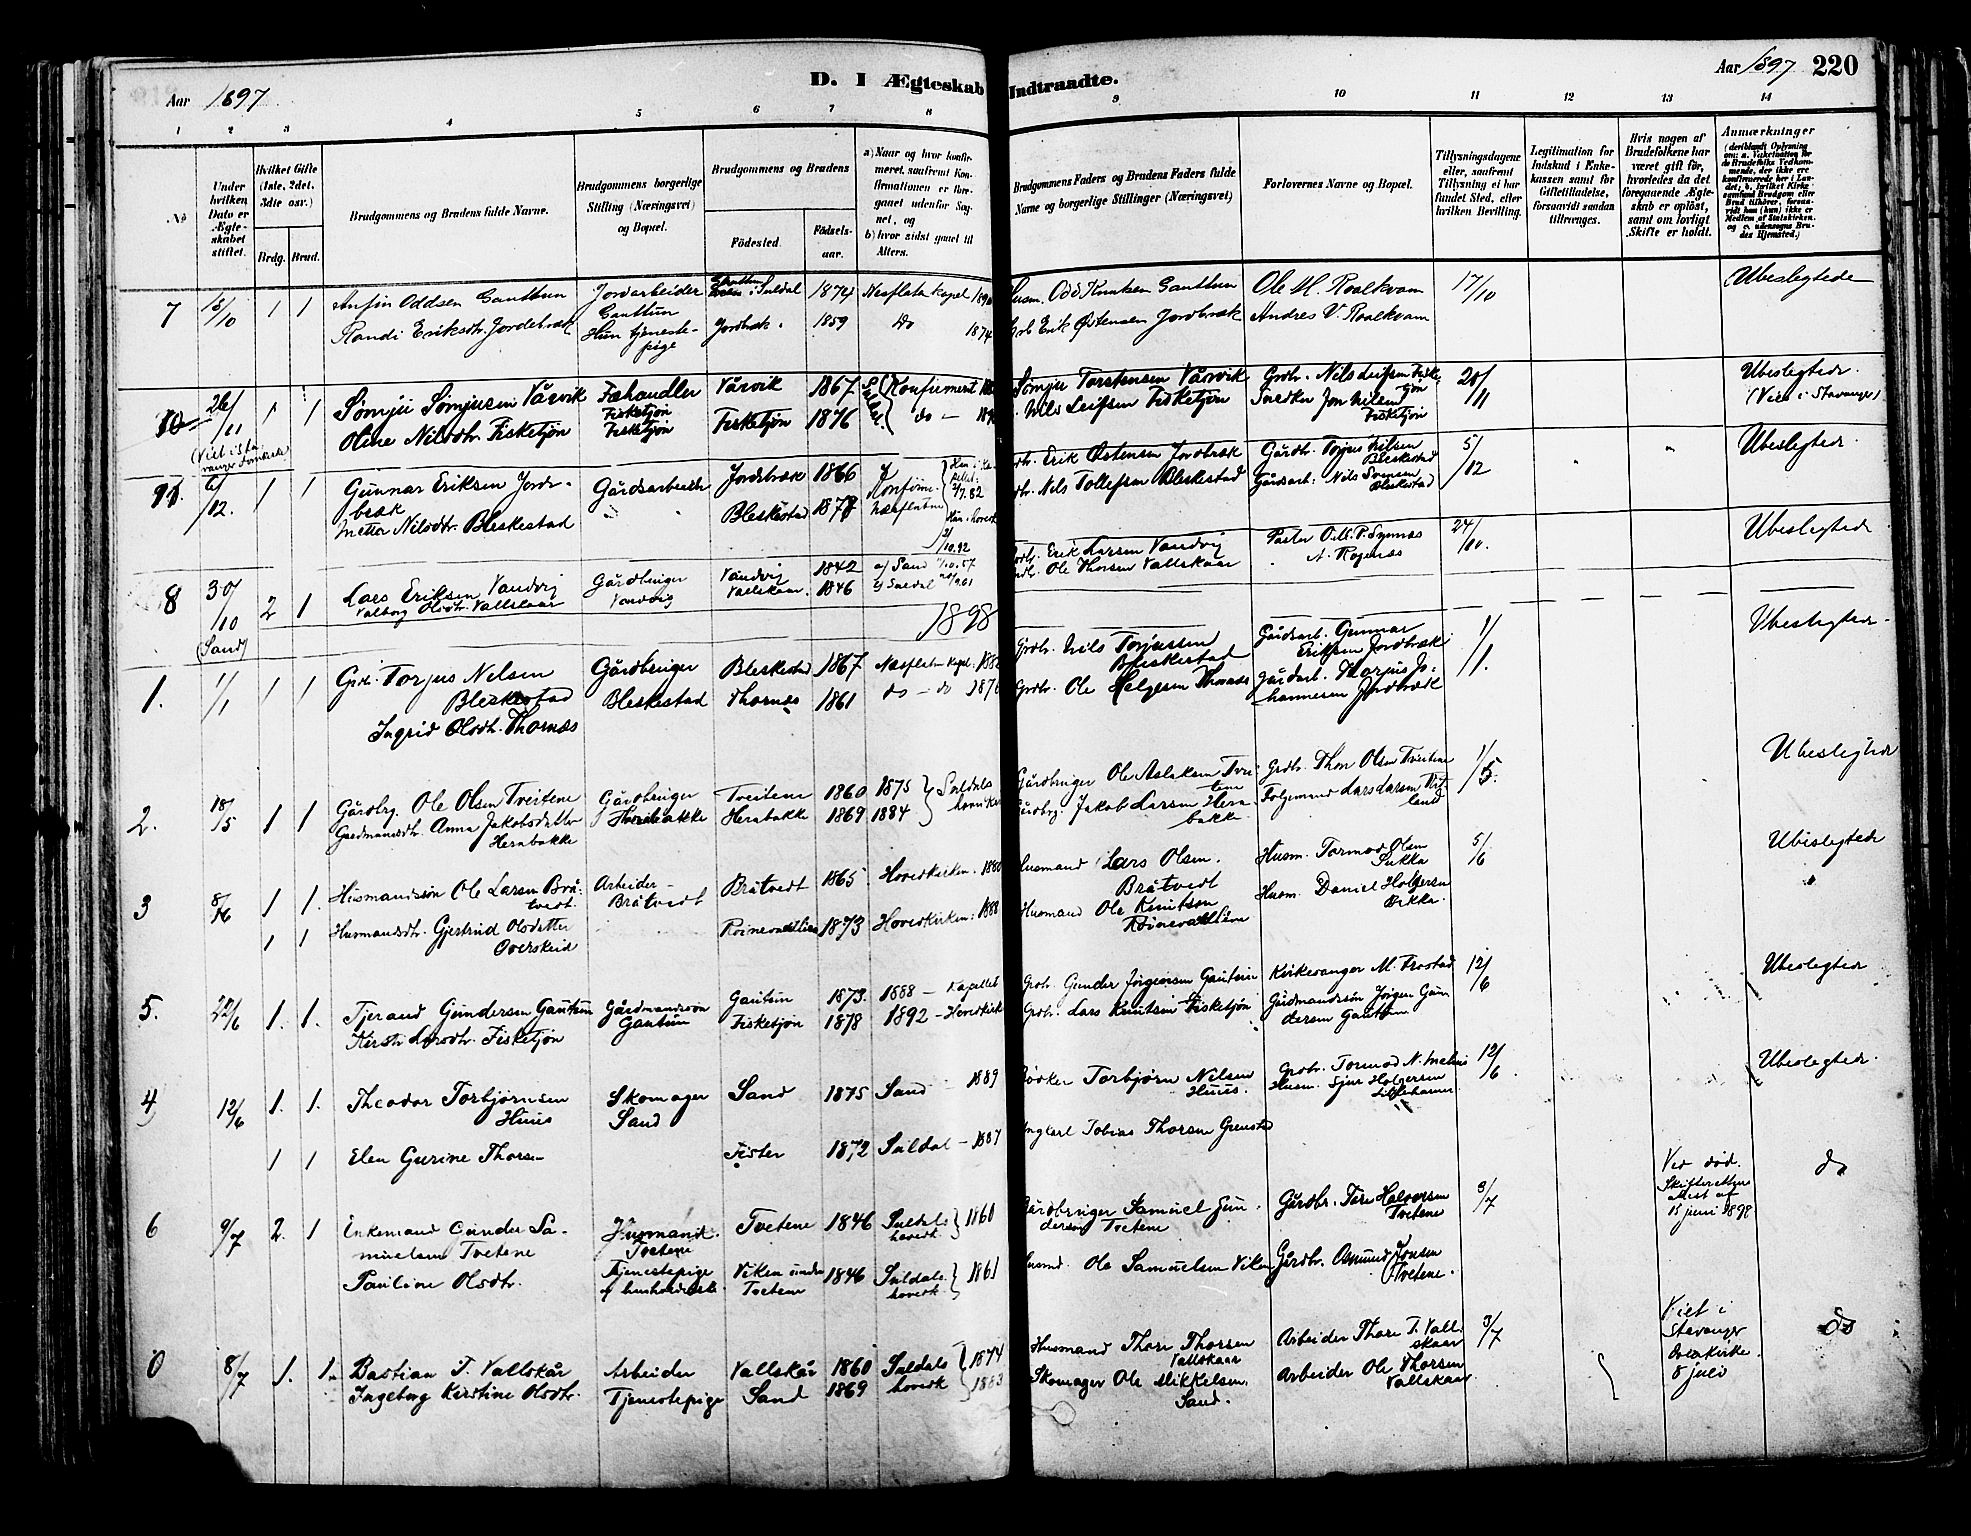 Aar 1897
D. I Ægteskab Indtraadte.
Aar 1897 220
1 2 3 4 5 6 7 8 9 10 11 12 13 14
No
Under hvilken Dato er Ægteskabet stiftet.
Hvilket Gifte (1ste, 2det, 3die osv.)
Brdg. Brud.
Brudgommens og Brudens fulde Navne.
Brudgommens borgerlige Stilling (Næringsvei) og Bopæl.
Brudgommens og Brudens
Födested. Födsels-aar.
a) Naar og hvor konfirmeret, saafremt Konfirmationen er foregaaet udenfor Sognet, og
b) hvor sidst gaaet til Alters.
Brudgommens Faders og Brudens Faders fulde Navne og borgerlige Stillinger (Næringsvei)
Forlovernes Navne og Bopæl.
Tillysningsdagene eller, saafremt Tillysning ei har fundet Sted, efter hvilken Bevilling.
Legitimation for Indskud i Enkekassen samt for Giftetilladelse, forsaavidt saadan tiltrænges.
Hvis nogen af Brudefolkene har været gift før, hvorledes da det foregaaende Ægteskab er oplöst, samt om lovligt Skifte er holdt.
Anmærkninger
7 15/10 1 1
Anfin Oddsen Gauthun
Randi Eriksdtr. Jordebræk
Jordarbeider
Gauthun
Hun tjenestepige
i Suldal 1874 Nesflaten Kapel
Jordbræk 1859 do 1874
Husm. Odd Knutsen Gauthun
Erik Østensen Jordbræk
Ole M. Roalkvam
Andres V. Roalkvam
17/10
Ubeslegtede
10 26/11 1 1
Sømju Sømjusen Vårvik
Oline Nilsdtr. Fisketjøn
Fæhandler
Fisketjøn
Fisketjøn
Vårvik 1867 Konfirmeret
Fisketjøn 1876 do
Sømju Torstensen Vårvik
Nils Leifsen Fisketjøn
Grdbr. Nils Leifsen Fisketjøn
Snedker Jon Nilsen Fisketjøn
20/11
Ubeslegtede
(Viet i Stavanger)
11 12. 1 1
Gunnar Eriksen Jordbræk
Metta Nilsdtr. Bleskestad
Gårdsarbeider
Jordbræk 1866
Bleskestad 1878
Erik Østensen Jordbræk
Nils Tollefsen Bleskestad
Gårdbr. Torjus Nilsen Bleskestad
Gårdsarb: Nils Svensen Bleskestad
5/12
Ubeslegtede.
8 30/10 2 1
(Sand)
Lars Eriksen Vandvig
Valborg Olsdtr. Vallskaar
Gårdbruger
Vandvig
Vandvig 1842 a) Sand
Vallskaar 1846 Suldal
Erik Larsen Vandvig
Ole Thorsen Vallskaar
24/10.
Ubeslegtede
1898
1. 1/1 1 1
Torjus Nilsen
Bleskestad
Ingrid Olsdtr. Thornæs
Gårdbruger
Bleskestad
Bleskestad 1867 Næsflaten Kapel
Thornæs 1861 do - do
Grdbr. Nils Torjussen
Bleskestad
Grdbr. Ole Helgesen Thornæs
Gårdsarb. Gunnar
Eriksen Jordbræk
Gårdarb. Thorjus Johannesen Jordbræk
1/1.
Ubeslegtede.
2. 18/5 1 1
Gårdbrg. Ole Olsen Tveitene
Gaardmandsdtr. Anna Jakobsdatter
Herabakke
Gårdbruger
Herabakke
Tveitene 1860 1875
Herabakke 1869 1884
Suldals hovedkirke
Gårdbruger Ole Aslaksen Tveitene
Gårdbrg. Jakob Larsen Herabakke
Grdbr. Thor Olsen Tveitene
Lars Larsen
1/5.
Ubeslegtede
3 8/6 1 1.
Husmandssøn Ole Larsen Bråtvedt.
1 1
Husmandsdtr. Gjertrud Olsdatter
Overskeid
Arbeider
Bråtvedt
Bråtvedt 1865 Hovedkirken. 1880
1873 Hovedkirken: 1888
Husmand Lars Olsen.
Bråtvedt
Husmand Ole Knutsen
Husm. Tormod Olsen
Husm. Daniel Holgersen
5/6
Ubeslegtede
5. 22/6 1. 1.
Tjerand Gundersen Gautun
Kirsti Larsdtr. Fisketjøn
Gårdmandssøn
Gautun
Gautun 1873. 1888 - Kapellet
Fisketjøn 1878 1892 - Hovedkirk
Grdbr. Gunder Jørgensen Gautun
Grdbr. Lars Knutsen Fisketjøn
Kirkesanger M. Frostad
Gårdmandssøn Jørgen Gundersen Gautun
12/6
Ubeslegtede
4 12/6 1. 1.
Theodor Torbjørnsen
Huus
1 1
Elen Gurine Thorsen
Skomager
Sand
Sand 1875 Sand 1889
Fister 1872 Suldal - 1887
Bødker Torbjørn Nilsen
Huus.
Ungkarl Tobias Thorsen
Grdbr. Tormod N. Mehus
Husm. Sjur Holgersen
12/6
Ubeslegtede.
6 9/7 2. 1
Enkemand Gunder Samuelsen Tvetene
Pauline Olsdtr.
Husmand.
Tvetene
Tjenestepige
Tvetene 1846 Suldals hovedk. 1860
Viken under Tvetene 1846 Suldals hovedk. 1861
Gårdbruger Samuel Gundersen Tvetene
Husmd. Ole Samuelsen Viken
Gårdbr. Tore Halvorsen Tvetene
Gårdbr. Osmund Jonsen Tvetene.
3/7
Ved død.
Skifteretten
attest af
15 juni 1898
do
0 8/7 1. 1.
Bastian T. Vallskår
Ingeborg Kirstine Olsdtr.
Arbeider
Tjenestepige
Vallskår 1860 Suldals 1874
Sand 1869 hovedk 1883
Husmand Thore Thorsen
Vallskaar
Skomager Ole Mikkelsen
Sand.
Arbeider Thore T. Vallskaar
Arbeider Ole Thorsen
Vallskaar
3/7
Viet i
Stavanger
8 juli
do